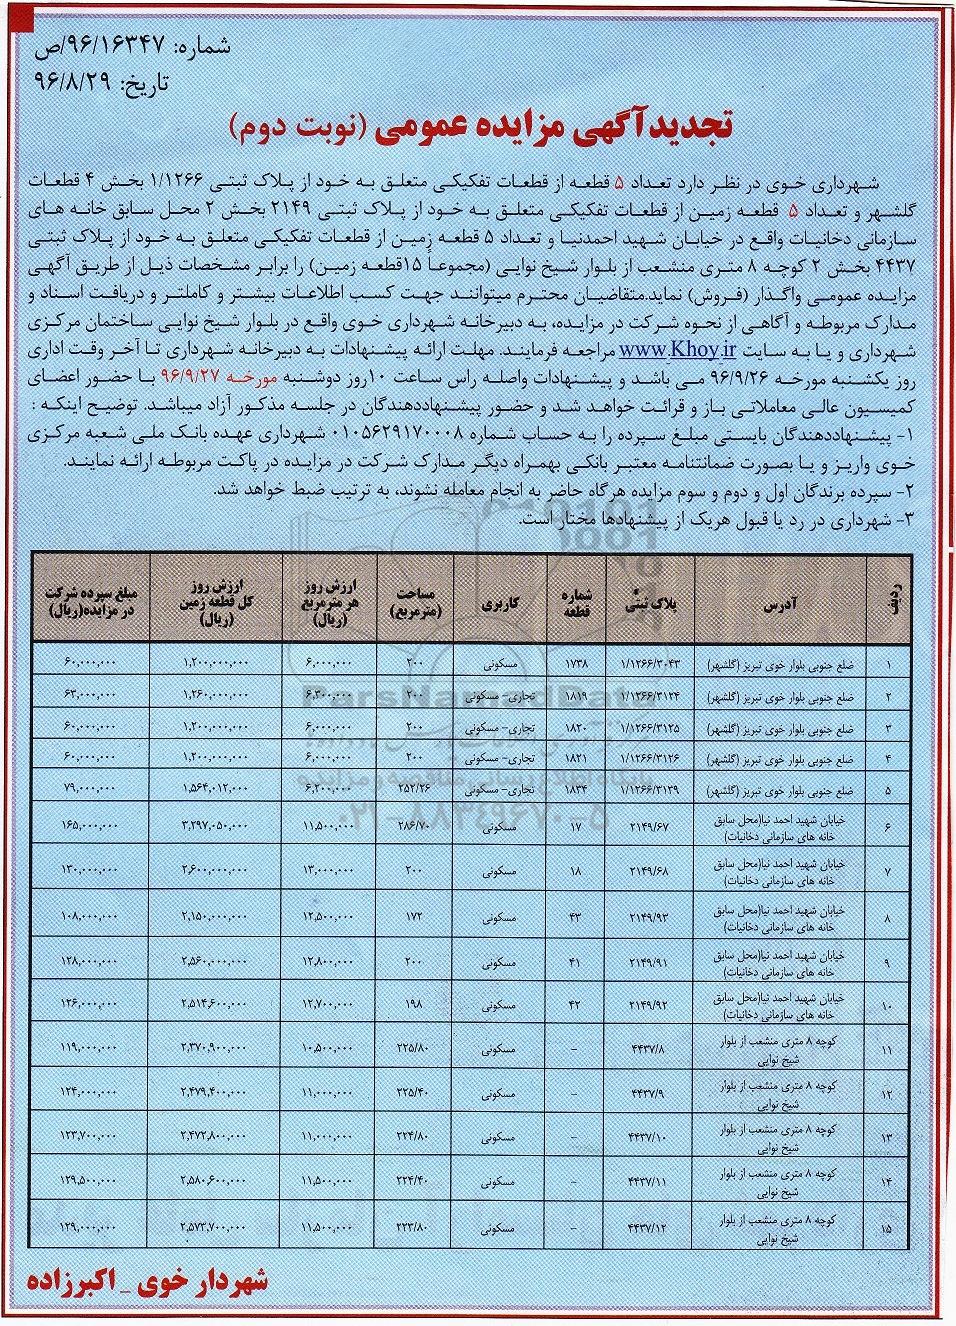 شماره: ۹۶/۱۶۳۴۷/ص
تاریخ: ۹۶/۸/۲۹
تجدیدآگهی مزایده عمومی (نوبت دوم)
شهرداری خوی در نظر دارد تعداد ۵ قطعه از قطعات تفکیکی متعلق به خود از پلاک ثبتی ۱/۱۲۶۶ بخش ۴ قطعات
گلشهر و تعداد ۵ قطعه زمین از قطعات تفکیکی متعلق به خود از پلاک ثبتی ۲۱۴۹ بخش ۲ محل سابق خانه های
سازمانی دخانیات واقع در خیابان شهید احمدنیا و تعداد ۵ قطعه زمین از قطعات تفکیکی متعلق به خود از پلاک ثبتی
۴۴۳۷ بخش ۲ کوچه ۸ متری منشعب از بلوار شیخ نوایی (مجموعاً ۱۵قطعه زمین) را برابر مشخصات ذیل از طریق آگهی
مزایده عمومی واگذار (فروش) نماید.متقاضیان محترم میتوانند جهت کسب اطلاعات بیشتر و کاملتر و دریافت اسناد و
مدارک مربوطه و آگاهی از نحوه شرکت در مزایده، به دبیرخانه شهرداری خوی واقع در بلوار شیخ نوایی ساختمان مرکزی
شهرداری و یا به سایت www.Khoy.ir مراجعه فرمایند. مهلت ارائه پیشنهادات به دبیرخانه شهرداری تا آخر وقت اداری
روز یکشنبه مورخه ۹۶/۹/۲۶ می باشد و پیشنهادات واصله راس ساعت ۱۰روز دوشنبه مورخه ۹۶/۹/۲۷ با حضور اعضای
کمیسیون عالی معاملاتی باز و قرائت خواهد شد و حضور پیشنهاددهندگان در جلسه مذکور آزاد میباشد. توضیح اینکه :
۱- پیشنهاددهندگان بایستی مبلغ سپرده را به حساب شماره ۰۱۰۵۶۲۹۱۷۰۰۰۸ شهرداری عهده بانک ملی شعبه مرکزی
خوی واریز و یا بصورت ضمانتنامه معتبر بانکی بهمراه دیگر مدارک شرکت در مزایده در پاکت مربوطه ارائه نمایند.
۲- سپرده برندگان اول و دوم و سوم مزایده هرگاه حاضر به انجام معامله نشوند، به ترتیب ضبط خواهد شد.
۳- شهرداری در رد یا قبول هریک از پیشنهادها مختار است.
ردیف آدرس پلاک ثبتی شماره قطعه کاربری مساحت (مترمربع) ارزش روز هر مترمربع (ریال) ارزش روز کل قطعه زمین (ریال) مبلغ سپرده شرکت در مزایده(ریال)
۱ ضلع جنوبی بلوار خوی تبریز (گلشهر) ۱/۱۲۶۶/۳۰۴۳ ۱۷۳۸ مسکونی ۲۰۰ ۶,۰۰۰,۰۰۰ ۱,۲۰۰,۰۰۰,۰۰۰ ۶۰,۰۰۰,۰۰۰
۲ ضلع جنوبی بلوار خوی تبریز (گلشهر) ۱/۱۲۶۶/۳۱۲۴ ۱۸۱۹ تجاری- مسکونی ۲۰۰ ۶,۳۰۰,۰۰۰ ۱,۲۶۰,۰۰۰,۰۰۰ ۶۳,۰۰۰,۰۰۰
۳ ضلع جنوبی بلوار خوی تبریز (گلشهر) ۱/۱۲۶۶/۳۱۲۵ ۱۸۲۰ تجاری- مسکونی ۲۰۰ ۶,۰۰۰,۰۰۰ ۱,۲۰۰,۰۰۰,۰۰۰ ۶۰,۰۰۰,۰۰۰
۴ ضلع جنوبی بلوار خوی تبریز (گلشهر) ۱/۱۲۶۶/۳۱۲۶ ۱۸۲۱ تجاری- مسکونی ۲۰۰ ۶,۰۰۰,۰۰۰ ۱,۲۰۰,۰۰۰,۰۰۰ ۶۰,۰۰۰,۰۰۰
۵ ضلع جنوبی بلوار خوی تبریز (گلشهر) ۱/۱۲۶۶/۳۱۳۹ ۱۸۳۴ تجاری- مسکونی ۲۵۲/۲۶ ۶,۲۰۰,۰۰۰ ۱,۵۶۴,۰۱۲,۰۰۰ ۷۹,۰۰۰,۰۰۰
۶ خیابان شهید احمد نیا(محل سابق خانه های سازمانی دخانیات) ۲۱۴۹/۶۷ ۱۷ مسکونی ۲۸۶/۷۰ ۱۱,۵۰۰,۰۰۰ ۳,۲۹۷,۰۵۰,۰۰۰ ۱۶۵,۰۰۰,۰۰۰
۷ خیابان شهید احمد نیا(محل سابق خانه های سازمانی دخانیات) ۲۱۴۹/۶۸ ۱۸ مسکونی ۲۰۰ ۱۳,۰۰۰,۰۰۰ ۲,۶۰۰,۰۰۰,۰۰۰ ۱۳۰,۰۰۰,۰۰۰
۸ خیابان شهید احمد نیا(محل سابق خانه های سازمانی دخانیات) ۲۱۴۹/۹۳ ۴۳ مسکونی ۱۷۲ ۱۲,۵۰۰,۰۰۰ ۲,۱۵۰,۰۰۰,۰۰۰ ۱۰۸,۰۰۰,۰۰۰
۹ خیابان شهید احمد نیا(محل سابق خانه های سازمانی دخانیات) ۲۱۴۹/۹۱ ۴۱ مسکونی ۲۰۰ ۱۲,۸۰۰,۰۰۰ ۲,۵۶۰,۰۰۰,۰۰۰ ۱۲۸,۰۰۰,۰۰۰
۱۰ خیابان شهید احمد نیا(محل سابق خانه های سازمانی دخانیات) ۲۱۴۹/۹۲ ۴۲ مسکونی ۱۹۸ ۱۲,۷۰۰,۰۰۰ ۲,۵۱۴,۶۰۰,۰۰۰ ۱۲۶,۰۰۰,۰۰۰
۱۱ کوچه ۸ متری منشعب از بلوار شیخ نوایی ۴۴۳۷/۸ - مسکونی ۲۲۵/۸۰ ۱۰,۵۰۰,۰۰۰ ۲,۳۷۰,۹۰۰,۰۰۰ ۱۱۹,۰۰۰,۰۰۰
۱۲ کوچه ۸ متری منشعب از بلوار شیخ نوایی ۴۴۳۷/۹ - مسکونی ۲۲۵/۴۰ ۱۱,۰۰۰,۰۰۰ ۲,۴۷۹,۴۰۰,۰۰۰ ۱۲۴,۰۰۰,۰۰۰
۱۳ کوچه ۸ متری منشعب از بلوار شیخ نوایی ۴۴۳۷/۱۰ - مسکونی ۲۲۴/۸۰ ۱۱,۰۰۰,۰۰۰ ۲,۴۷۲,۸۰۰,۰۰۰ ۱۲۳,۷۰۰,۰۰۰
۱۴ کوچه ۸ متری منشعب از بلوار شیخ نوایی ۴۴۳۷/۱۱ - مسکونی ۲۲۴/۴۰ ۱۱,۵۰۰,۰۰۰ ۲,۵۸۰,۶۰۰,۰۰۰ ۱۲۹,۵۰۰,۰۰۰
۱۵ کوچه ۸ متری منشعب از بلوار شیخ نوایی ۴۴۳۷/۱۲ - مسکونی ۲۲۳/۸۰ ۱۱,۵۰۰,۰۰۰ ۲,۵۷۳,۷۰۰,۰۰۰ ۱۲۹,۰۰۰,۰۰۰
ParsNamadData
پایگاه اطلاع رسانی مناقصه و مزایده
۰۲۱-۸۸۳۴۹۶۷۰-۵
شهردار خوی _ اکبرزاده